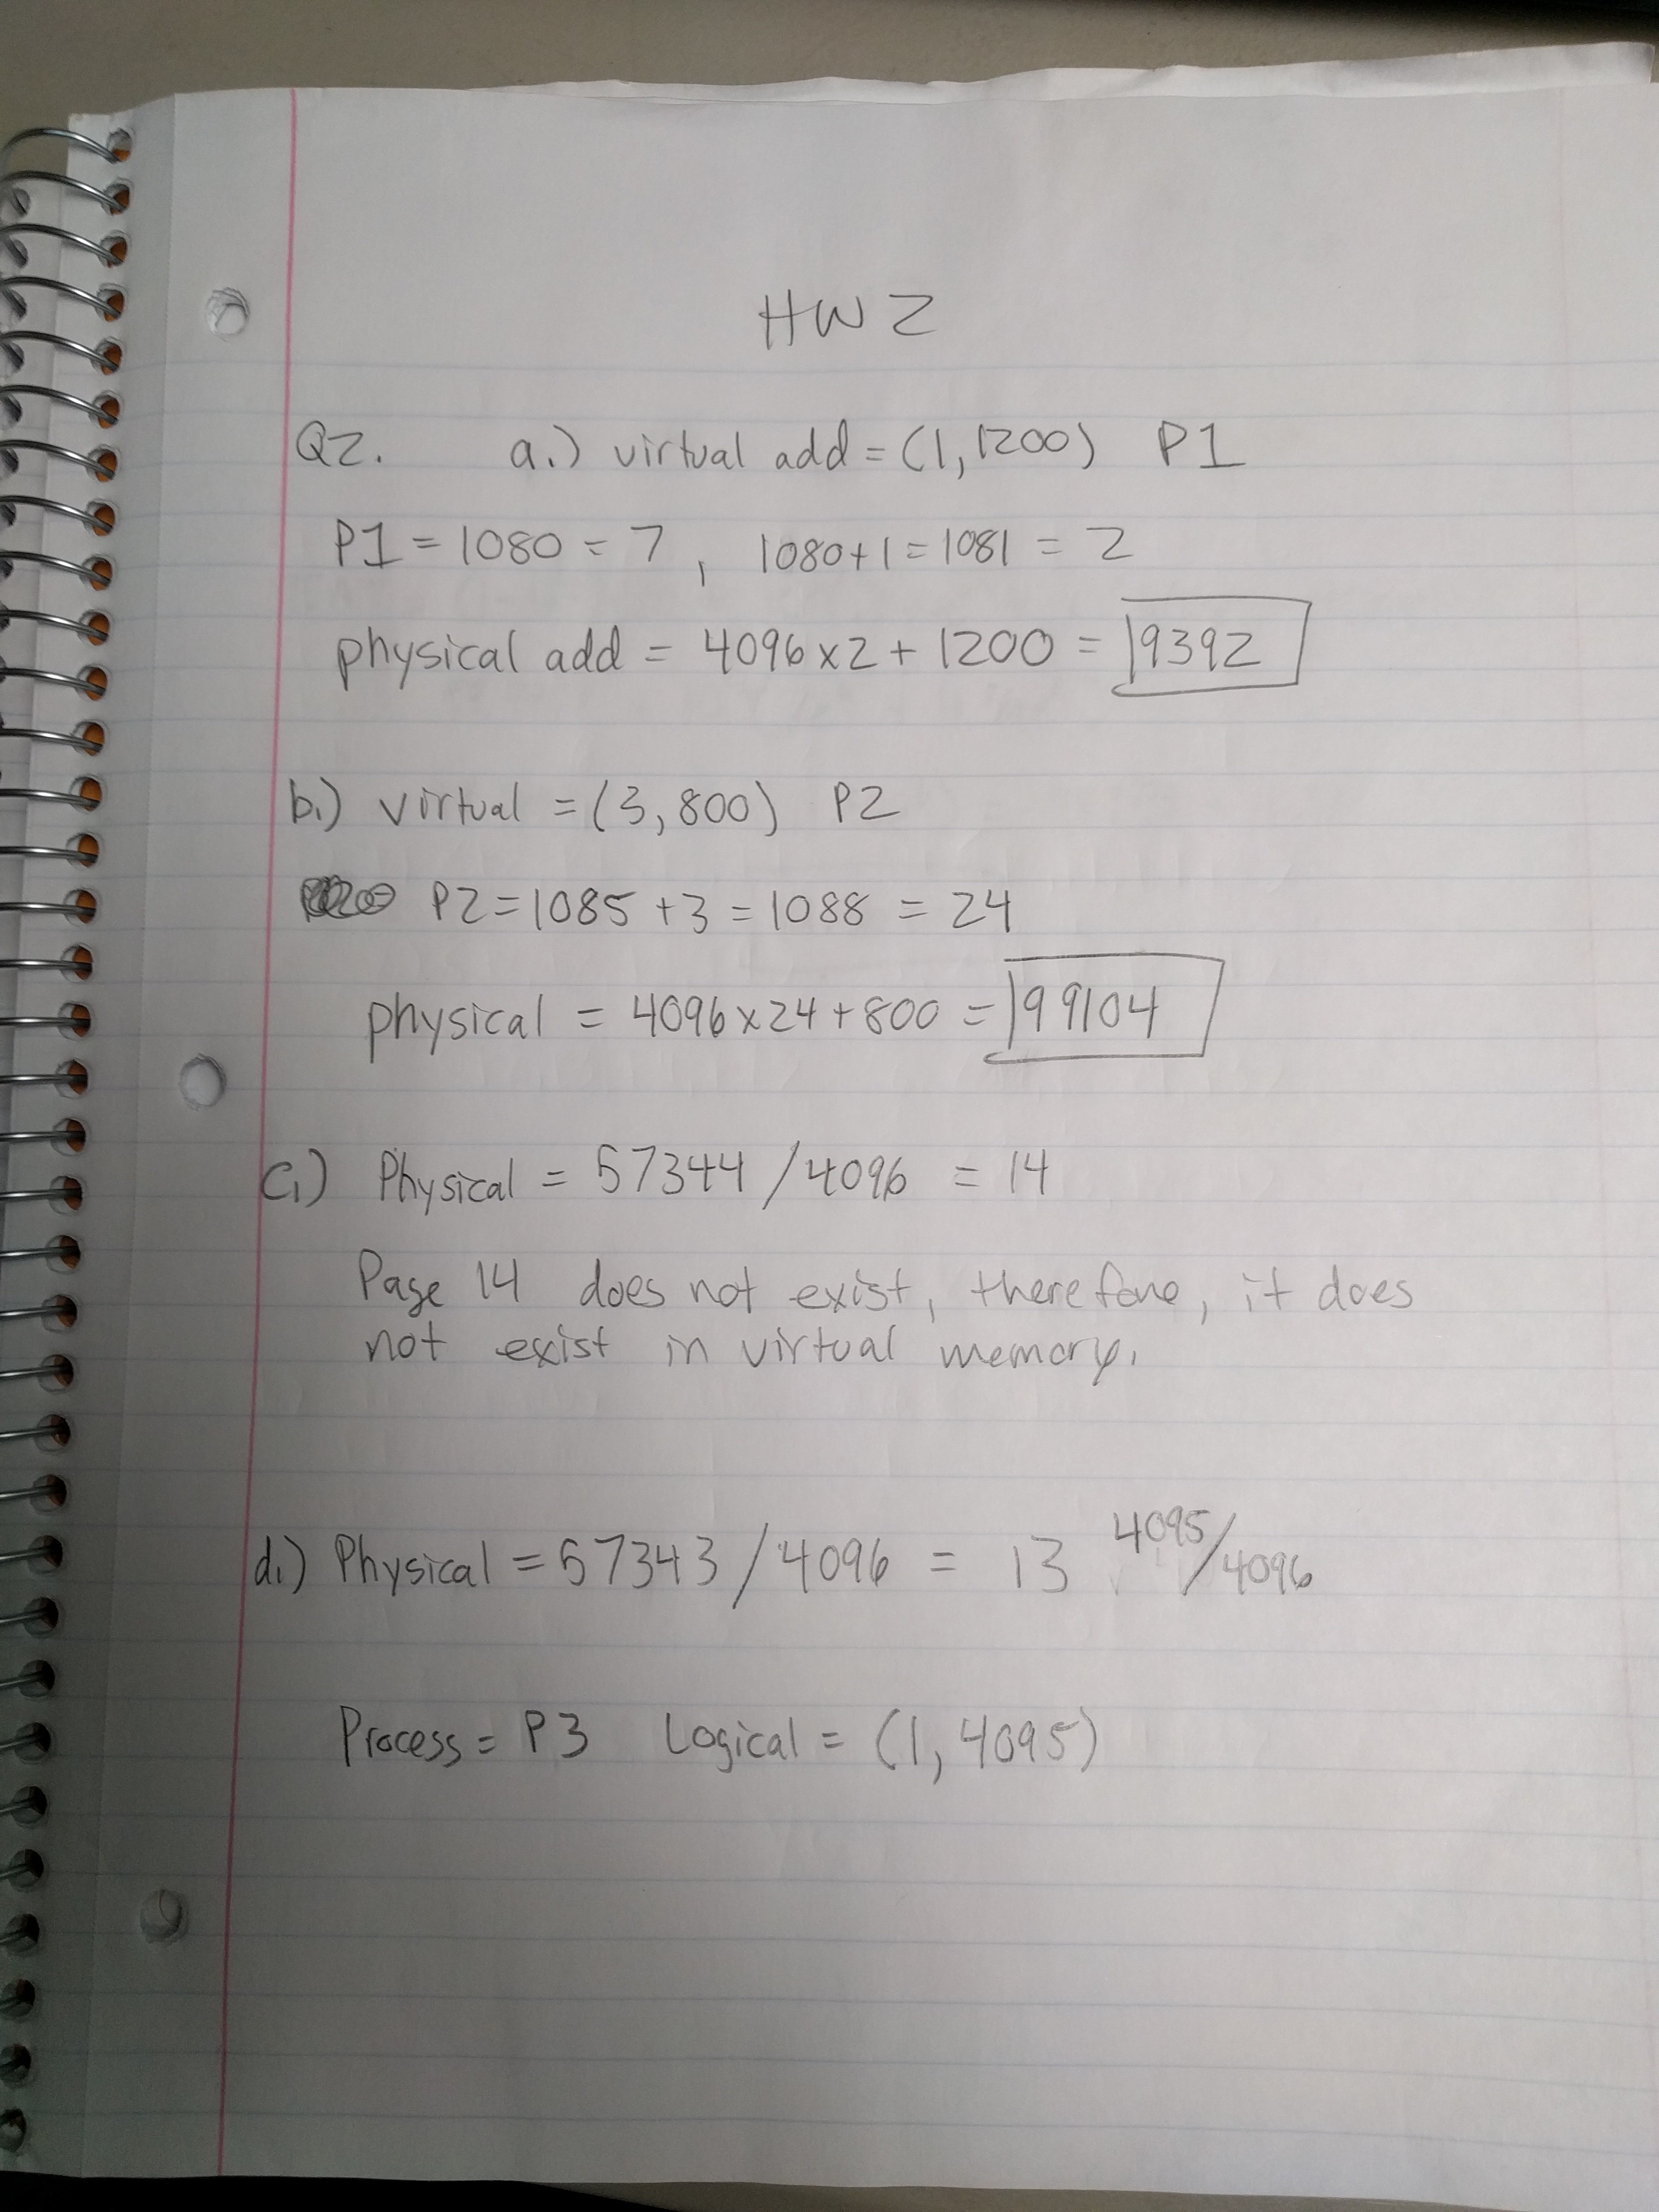 HW 2
Q2. a.) virtual add = (1, 1200) P1
P1 = 1080 = 7, 1080+1 = 1081 = 2
physical add = 4096 x 2 + 1200 = 9392
b.) virtual = (3, 800) P2
P2 = 1085 + 3 = 1088 = 24
physical = 4096 x 24 + 800 = 99104
c.) Physical = 57344 / 4096 = 14
Page 14 does not exist, therefore, it does
not exist in virtual memory.
d.) Physical = 57343 / 4096 = 13 4095/4096
Process = P3 Logical = (1, 4095)